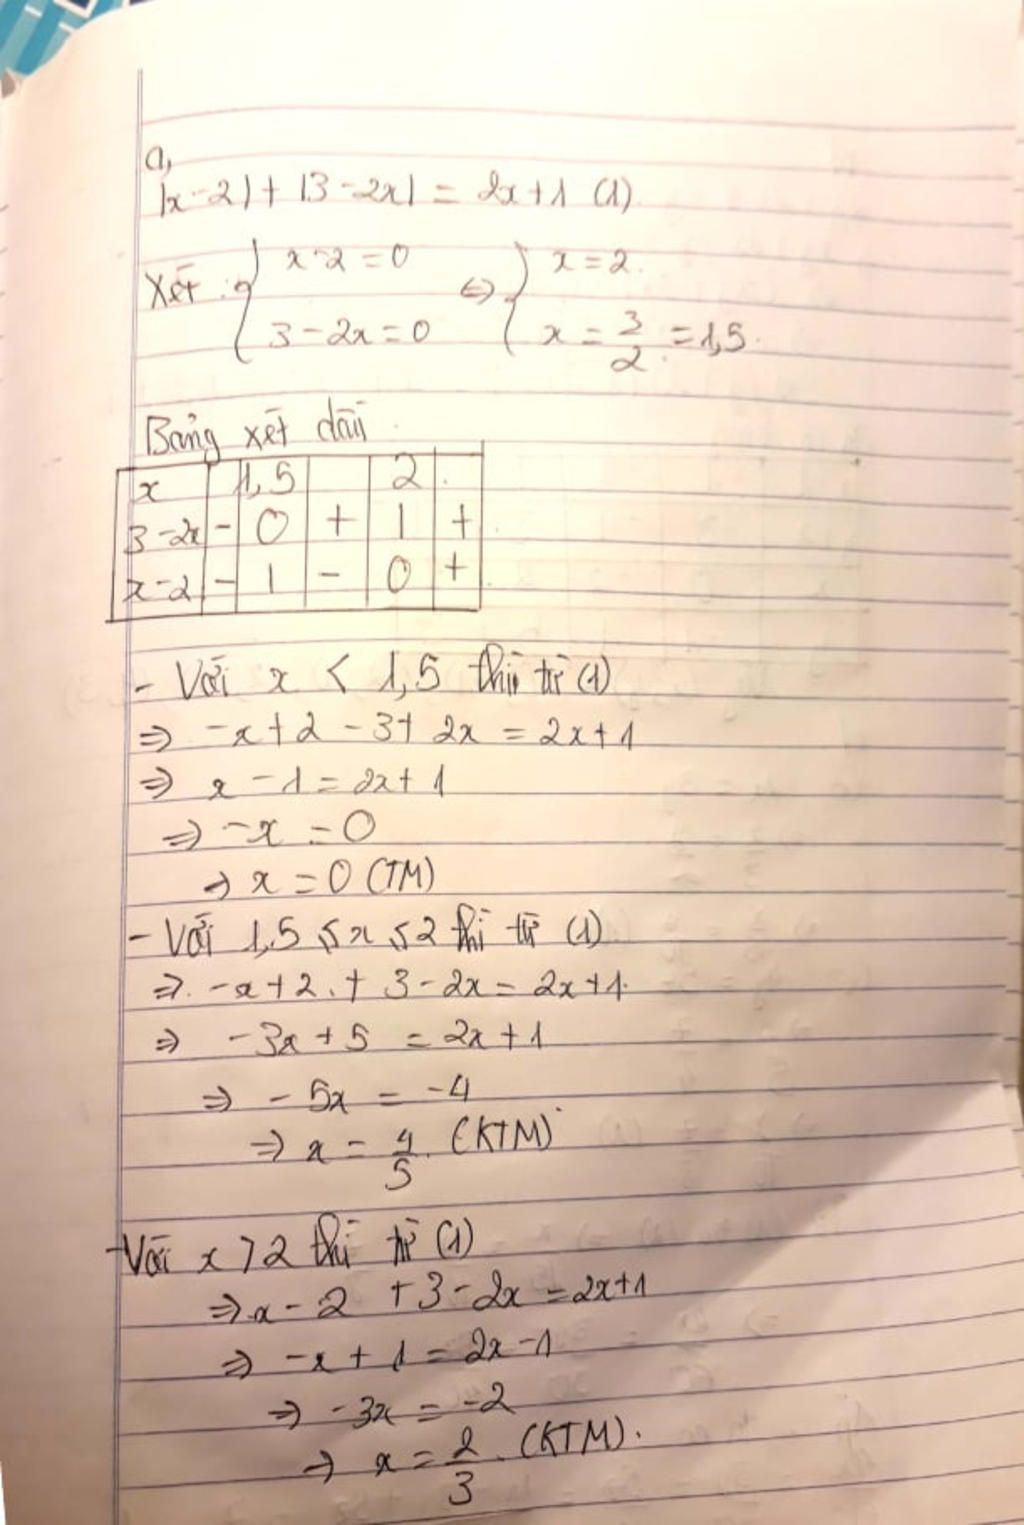 a,
|x-2|+|3-2x| = 2x+1 (1)
Xét: { x-2=0 ⇔ { x=2.
3-2x=0 x = 3/2 = 1,5.
Bảng xét dấu
x 1,5 2
3-2x - 0 + | +
x-2 - | - 0 +
- Với x < 1,5 thì từ (1)
⇒ -x+2-3+2x = 2x+1
⇒ x-1 = 2x+1
⇒ -x = 0
→ x = 0 (TM)
- Với 1,5 ≤ x ≤ 2 thì từ (1)
⇒ -x+2+3-2x = 2x+1.
⇒ -3x+5 = 2x+1
⇒ -5x = -4
⇒ x = 4/5. (KTM)
- Với x > 2 thì từ (1)
⇒ x-2+3-2x = 2x+1
⇒ -x+1 = 2x-1
⇒ -3x = -2
→ x = 2/3. (KTM).